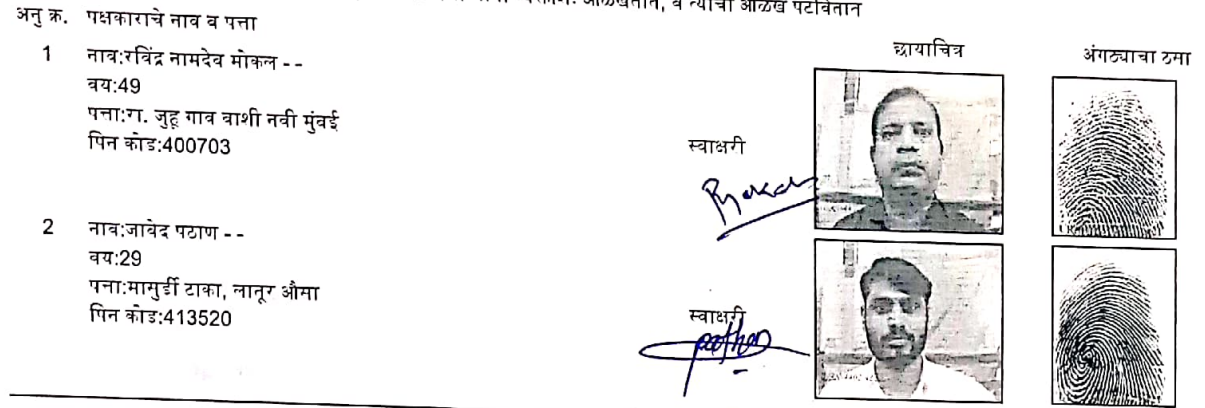 आळखतात, व त्यांची ओळख पटवितात
अनु क्र. पक्षकाराचे नाव व पत्ता
छायाचित्र अंगठ्याचा ठसा
1 नाव:रविंद्र नामदेव मोकल - -
वय:49
पत्ता:रा. जुहू गाव वाशी नवी मुंबई
पिन कोड:400703
स्वाक्षरी
2 नाव:जावेद पठाण - -
वय:29
पत्ता:मामुर्डी टाका, लातूर औसा
पिन कोड:413520
स्वाक्षरी
pathan